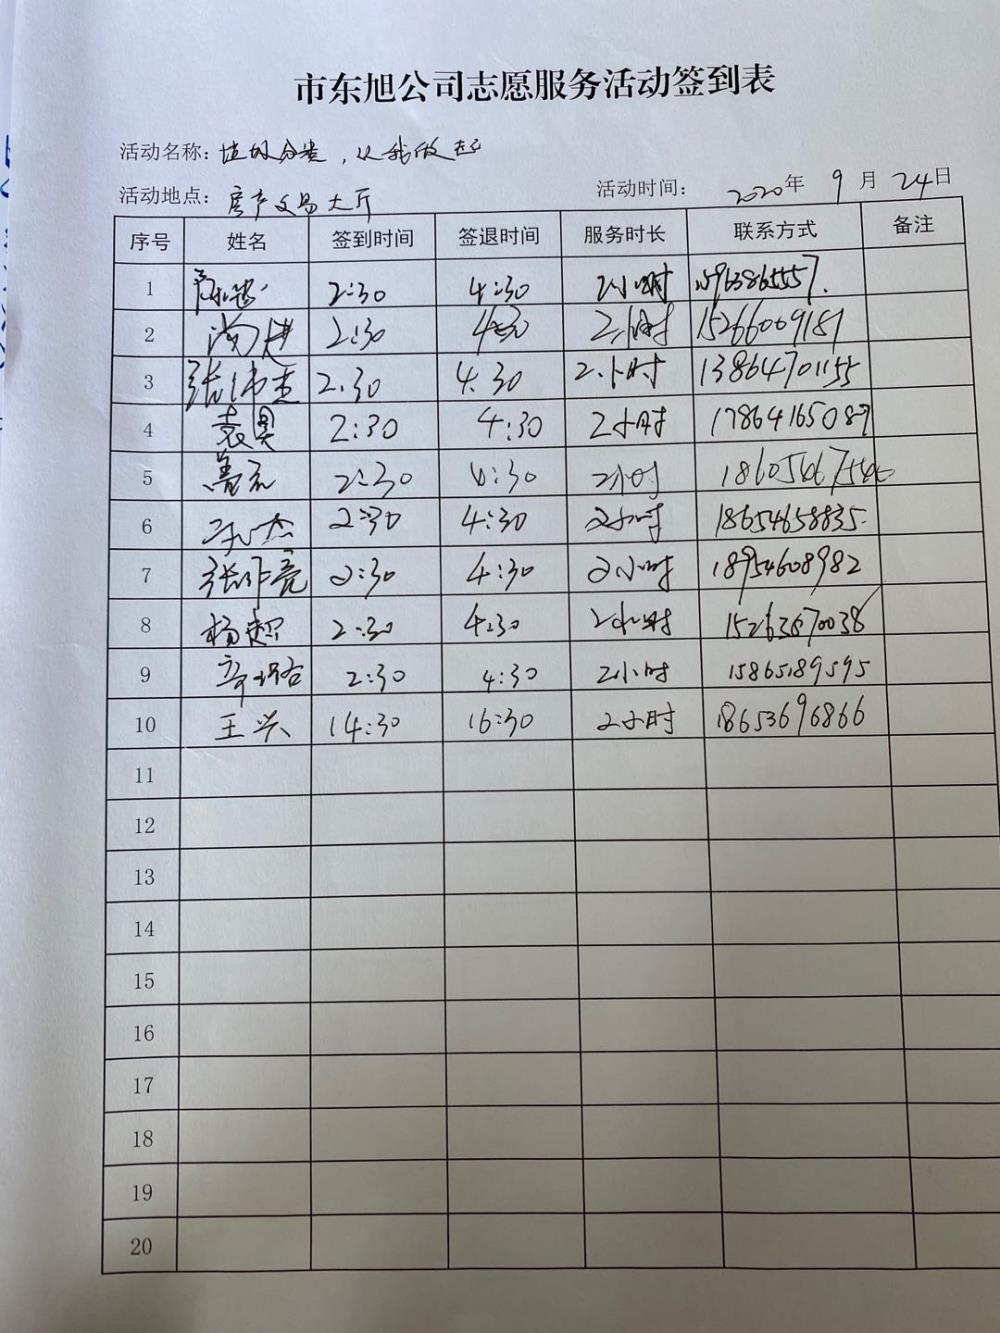 市东旭公司志愿服务活动签到表
活动名称：垃圾分类，从我做起
活动地点：房产交易大厅 活动时间： 2020年 9月 24日
序号 姓名 签到时间 签退时间 服务时长 联系方式 备注
1 2:30 4:30 2小时
2 尚进 2:30 4:30 2小时 15266009181
3 张伟杰 2:30 4.30 2小时 13864701155
4 袁昊 2:30 4:30 2小时 17864165087
5 2:30 4:30 2小时 18605467546
6 2:30 4:30 2小时 18654658835
7 张作亮 2:30 4:30 2小时 18954608982
8 杨超 2:30 4:30 2小时 15263870038
9 2:30 4:30 2小时 15865189595
10 王兴 14:30 16:30 2小时 18653696866
11
12
13
14
15
16
17
18
19
20